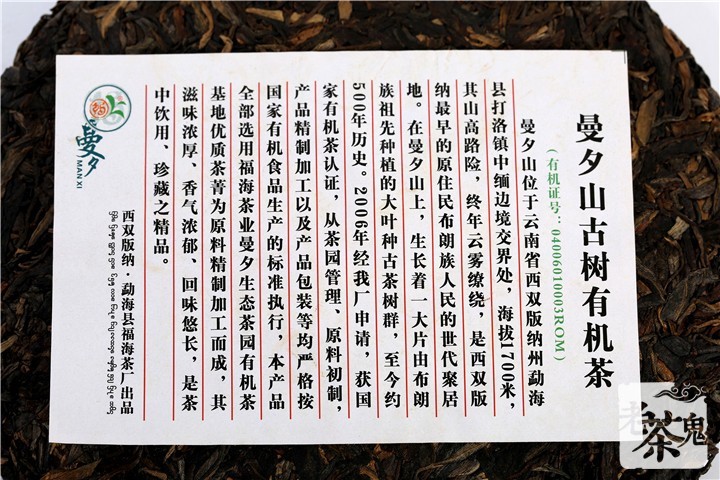 曼夕山古树有机茶
(有机证号：04006010003ROM)
曼夕山位于云南省西双版纳州勐海
县打洛镇中缅边境交界处，海拔1700米，
其山高路险，终年云雾缭绕，是西双版
纳最早的原住民布朗族人民的世代聚居
地。在曼夕山上，生长着一大片由布朗
族祖先种植的大叶种古茶树群，至今约
500年历史。2006年经我厂申请，获国
家有机茶认证，从茶园管理、原料初制，
产品精制加工以及产品包装等均严格按
国家有机食品生产的标准执行，本产品
全部选用福海茶业曼夕生态茶园有机茶
基地优质茶菁为原料精制加工而成，其
滋味浓厚、香气浓郁、回味悠长，是茶
中饮用、珍藏之精品。
曼夕
MAN XI
西双版纳·勐海县福海茶厂出品
老茶鬼